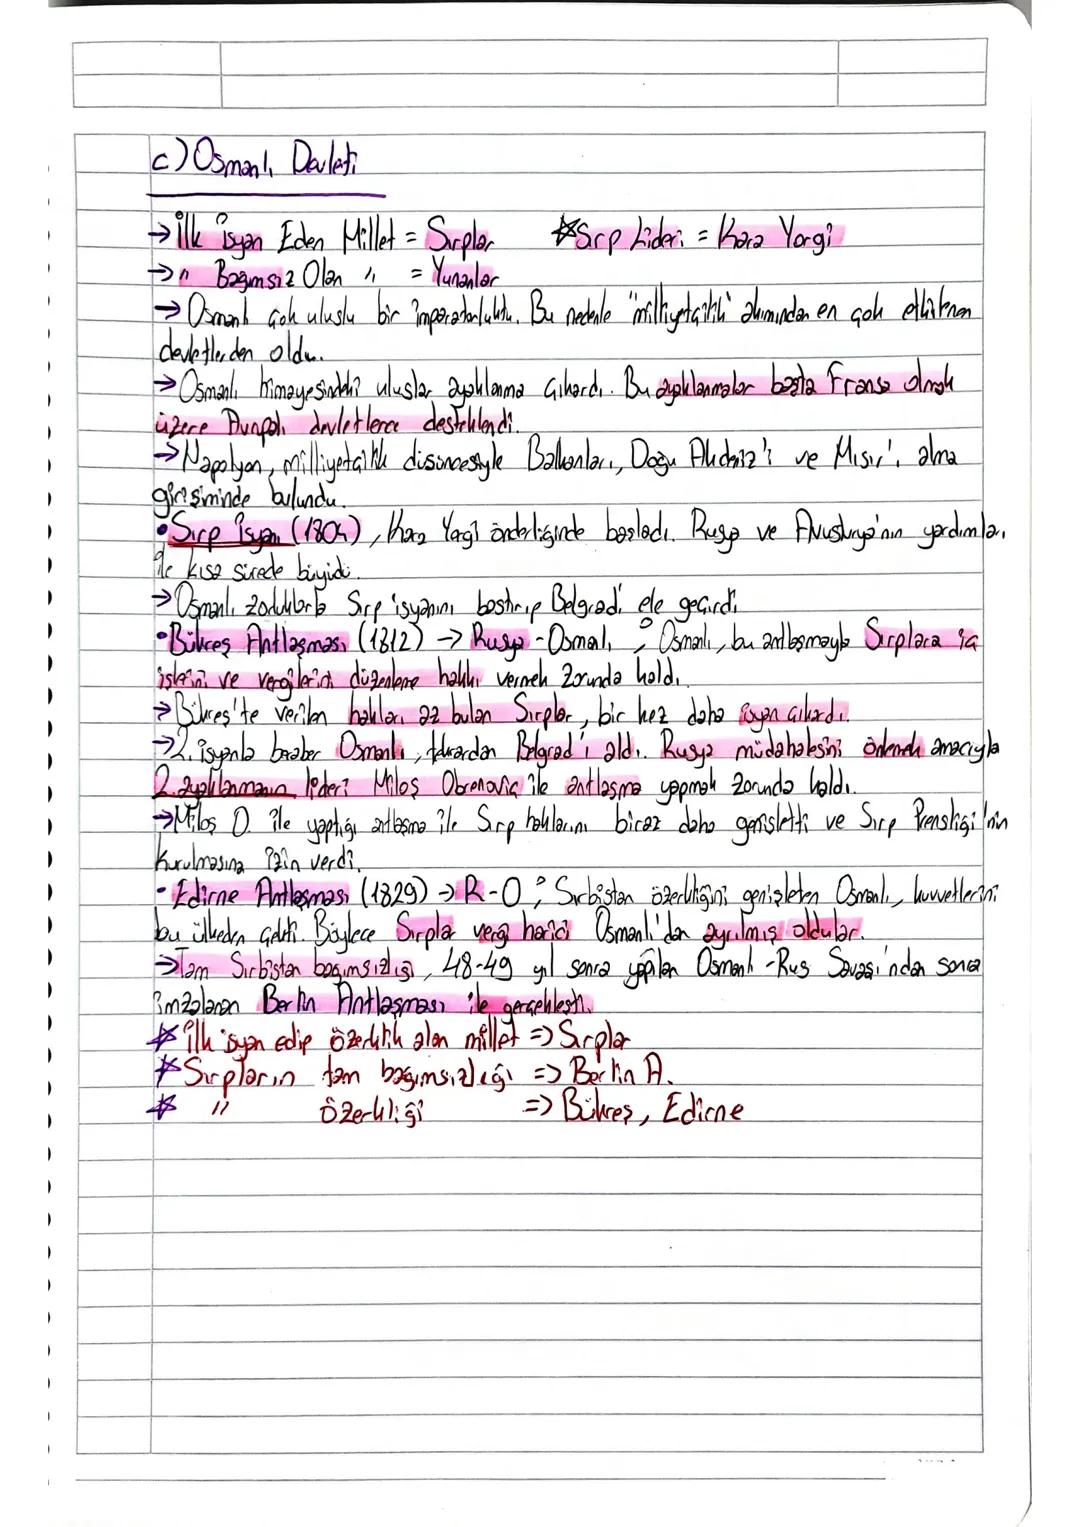 c) Osmanlı Devleti
→ İlk İsyan Eden Millet = Sırplar ☆Sırp Lideri = Kara Yorgi
→ " Bağımsız Olan " = Yunanlar
→ Osmanlı çok uluslu bir imparatorluktu. Bu nedenle "milliyetçilik" akımından en çok etkilenen
devletlerden oldu.
→ Osmanlı himayesindeki uluslar ayaklanma çıkardı. Bu ayaklanmalar başta Fransa olmak
üzere Avrupalı devletlerce desteklendi.
→ Napolyon, milliyetçilik düşüncesiyle Balkanları, Doğu Akdeniz'i ve Mısır'ı alma
girişiminde bulundu.
• Sırp İsyanı (1804), Kara Yorgi önderliğinde başladı. Rusya ve Avusturya'nın yardımları
ile kısa sürede büyüdü.
→ Osmanlı zorluklarla Sırp isyanını bastırıp Belgrad'ı ele geçirdi.
• Bükreş Antlaşması (1812) → Rusya - Osmanlı ; Osmanlı, bu antlaşmayla Sırplara iç
işlerini ve vergilerini düzenleme hakkı vermek zorunda kaldı.
→ Bükreş'te verilen hakları az bulan Sırplar, bir kez daha isyan çıkardı.
→ 2. isyanla beraber Osmanlı, tekrardan Belgrad'ı aldı. Rusya müdahalesini önlemek amacıyla
2. ayaklanmanın lideri Miloş Obrenoviç ile antlaşma yapmak zorunda kaldı.
→ Miloş O. ile yaptığı antlaşma ile Sırp haklarını biraz daha genişletti ve Sırp Prensliği'nin
kurulmasına izin verdi.
• Edirne Antlaşması (1829) → R - O ; Sırbistan özerkliğini genişleten Osmanlı, kuvvetlerini
bu ülkeden çekti. Böylece Sırplar vergi harici Osmanlı'dan ayrılmış oldular.
→ Tam Sırbistan bağımsızlığı, 48-49 yıl sonra yapılan Osmanlı - Rus Savaşı'ndan sonra
imzalanan Berlin Antlaşması ile gerçekleşti.
☆ İlk isyan edip özerklik alan millet => Sırplar
☆ Sırpların tam bağımsızlığı => Berlin A.
☆ " Özerkliği => Bükreş, Edirne